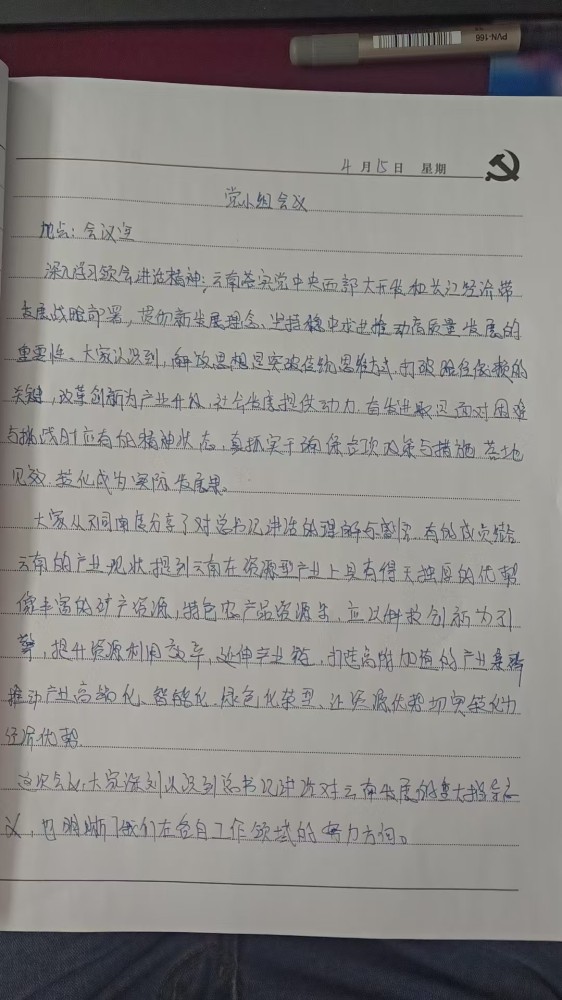 PVN-166
4月15日 星期
党小组会议
地点:会议室
深入学习领会讲话精神;云南落实党中央西部大开发和长江经济带
发展战略部署,贯彻新发展理念、坚持稳中求进推动高质量发展的
重要性。大家认识到,解放思想是突破传统思维方式,打破路径依赖的
关键,改革创新为产业升级、社会发展提供动力,奋发进取是面对困难
与挑战时应有的精神状态,真抓实干确保各项政策与措施落地
见效,转化成为实际发展果。
大家从不同角度分享了对总书记讲话的理解与感悟,有的成员结合
云南的产业现状提到云南在资源型产业上具有得天独厚的优势
像丰富的矿产资源,特色农产品资源等,应以科技创新为引
擎,提升资源利用效率,延伸产业链,打造高附加值的产业集群
推动产业高端化、智能化、绿色化转型、让资源优势切实转化为
经济优势.
这次会议,大家深刻认识到总书记讲话对云南发展的重大指导意
义,也明晰了我们在各自工作领域的努力方向。